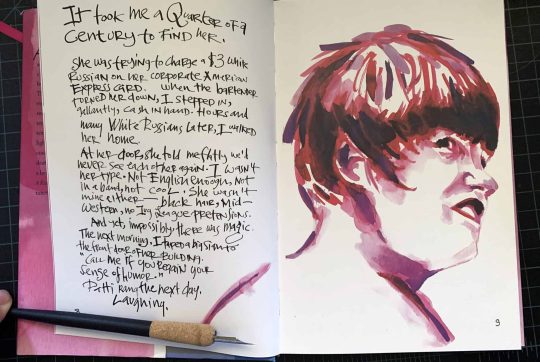 It took me a Quarter of a
Century to Find her.
She was trying to charge a $3 White
Russian on her corporate American
Express card. When the bartender
turned her down, I stepped in,
gallantly, cash in hand. Hours and
many White Russians later, I walked
her home.
At her door, she told me flatly we'd
never see each other again. I wasn't
her type. Not English enough, Not
in a band, not cool. She wasn't
mine either— black hair, Mid-
Western, no Ivy League pretensions.
And yet, impossibly, there was magic.
The next morning, I taped a big sign to
the front door of her building.
"Call me if you regain your
sense of humor."
Patti rang the next day.
Laughing.
8
9